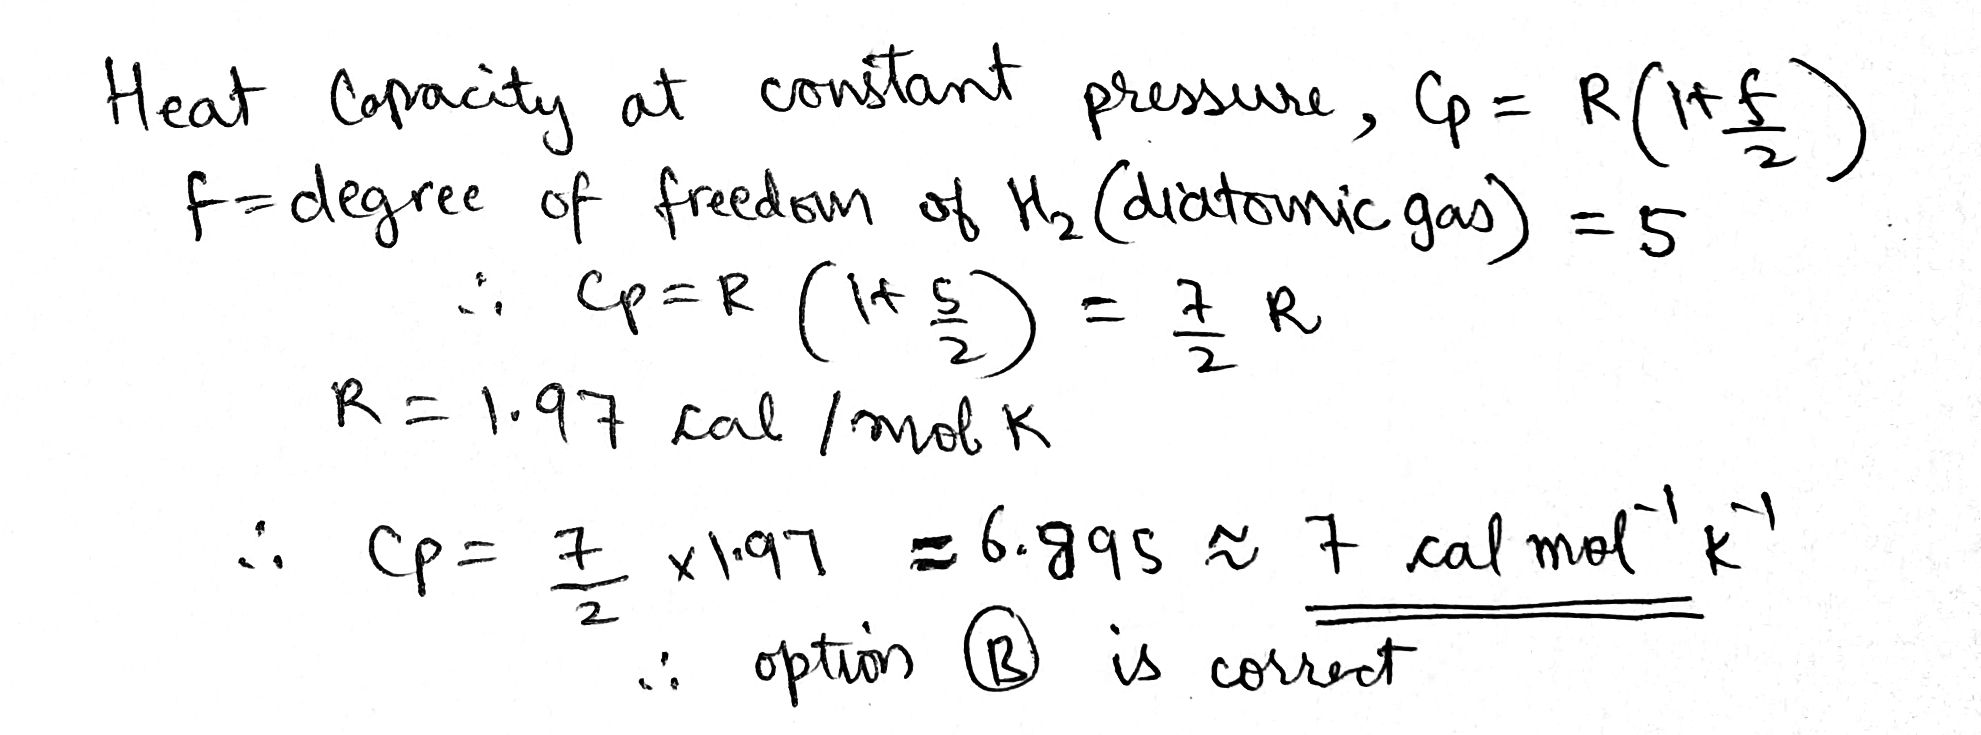 Heat Capacity at constant pressure, Cp = R(1+f/2)
f = degree of freedom of H₂ (diatomic gas) = 5
∴ Cp = R (1+5/2) = 7/2 R
R = 1.97 cal /mol K
∴ Cp = 7/2 ×1.97 = 6.895 ≈ 7 cal mol⁻¹ K⁻¹
∴ option Ⓑ is correct